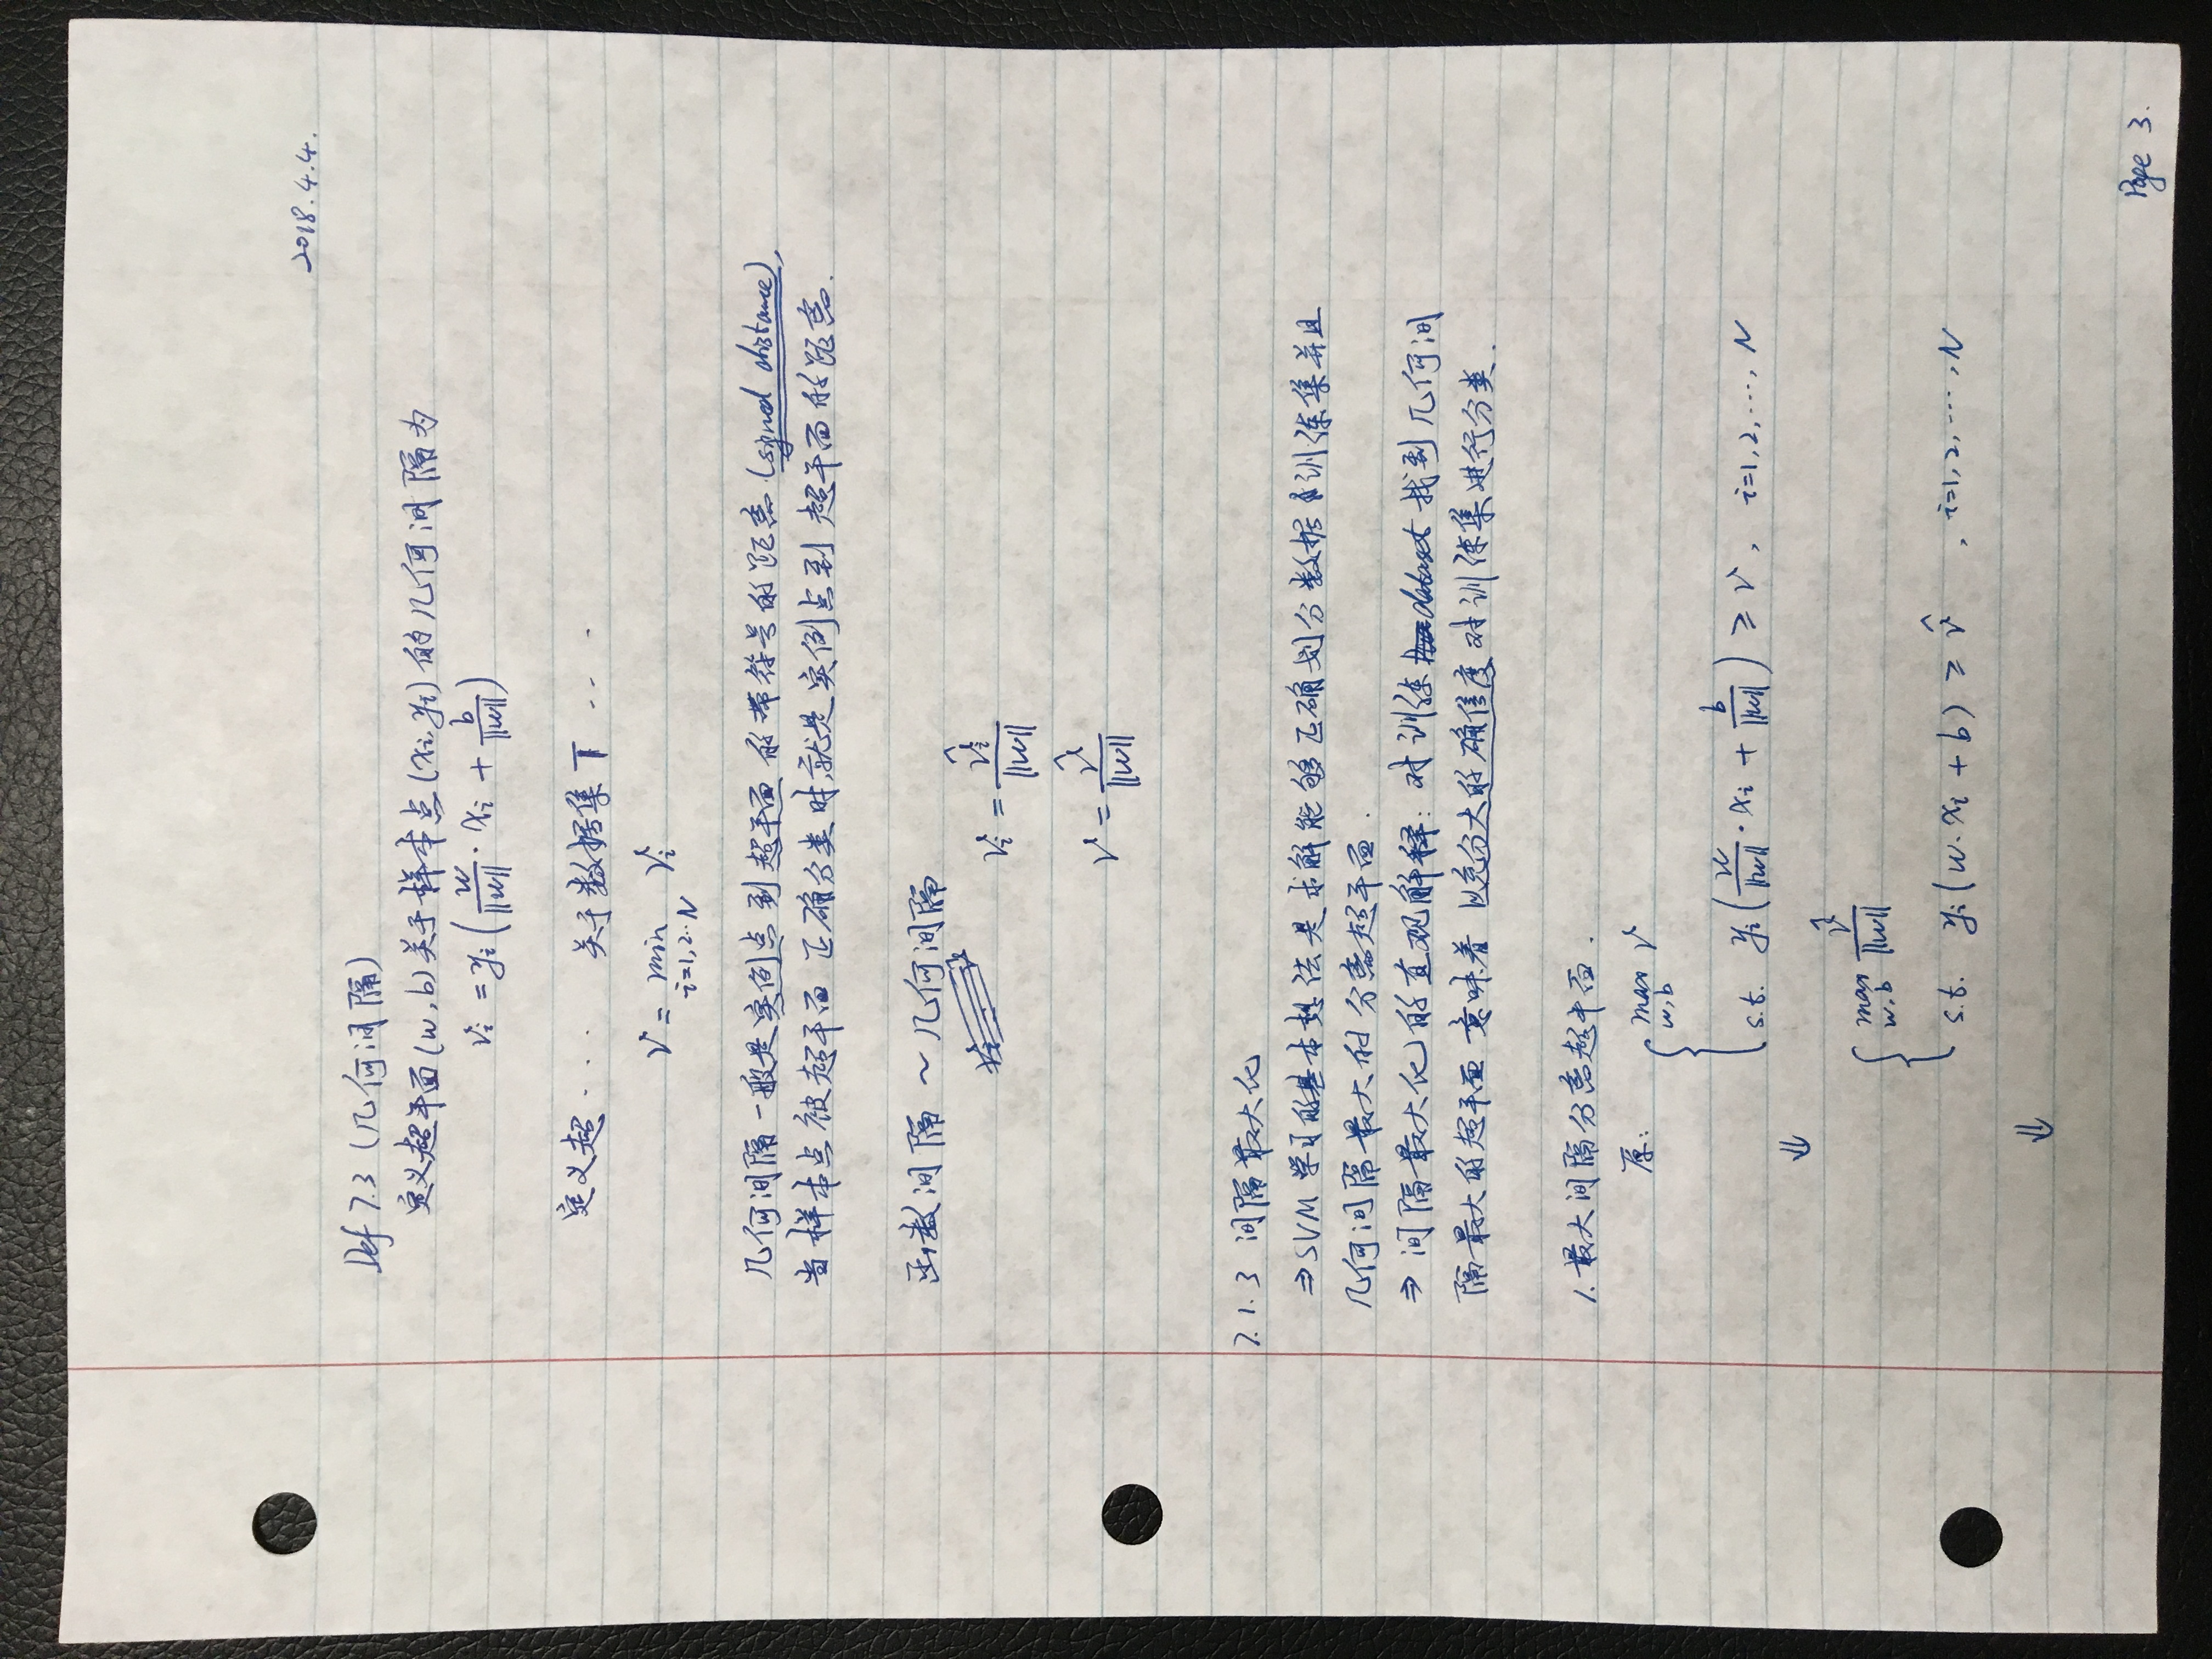 2018.4.4.
Def 7.3 (几何间隔)
定义超平面(w,b)关于样本点(xi,yi)的几何间隔为
γi = yi ( w/‖w‖ · xi + b/‖w‖ )
定义超 ... 关于数据集 T ...
γ = min γi
i=1,2..N
几何间隔一般是实例点到超平面的带符号的距离(signed distance),
当样本点被超平面正确分类时,就是实例点到超平面的距离.
函数间隔 ~ 几何间隔
γi = γ̂i / ‖w‖
γ = γ̂ / ‖w‖
7.1.3 间隔最大化
⇒ SVM 学习的基本想法是求解能够正确划分数据训练集并且
几何间隔最大的分离超平面.
⇒ 间隔最大化的直观解释: 对训练 dataset 找到几何间
隔最大的超平面意味着以充分大的确信度对训练集进行分类.
1. 最大间隔分离超平面.
原: max γ
w,b
s.t. yi ( w/‖w‖ · xi + b/‖w‖ ) ≥ γ, i=1,2,...,N
⇓
max γ̂/‖w‖
w,b
s.t. yi (w·xi + b) ≥ γ̂ , i=1,2,...,N
⇓
Page 3.